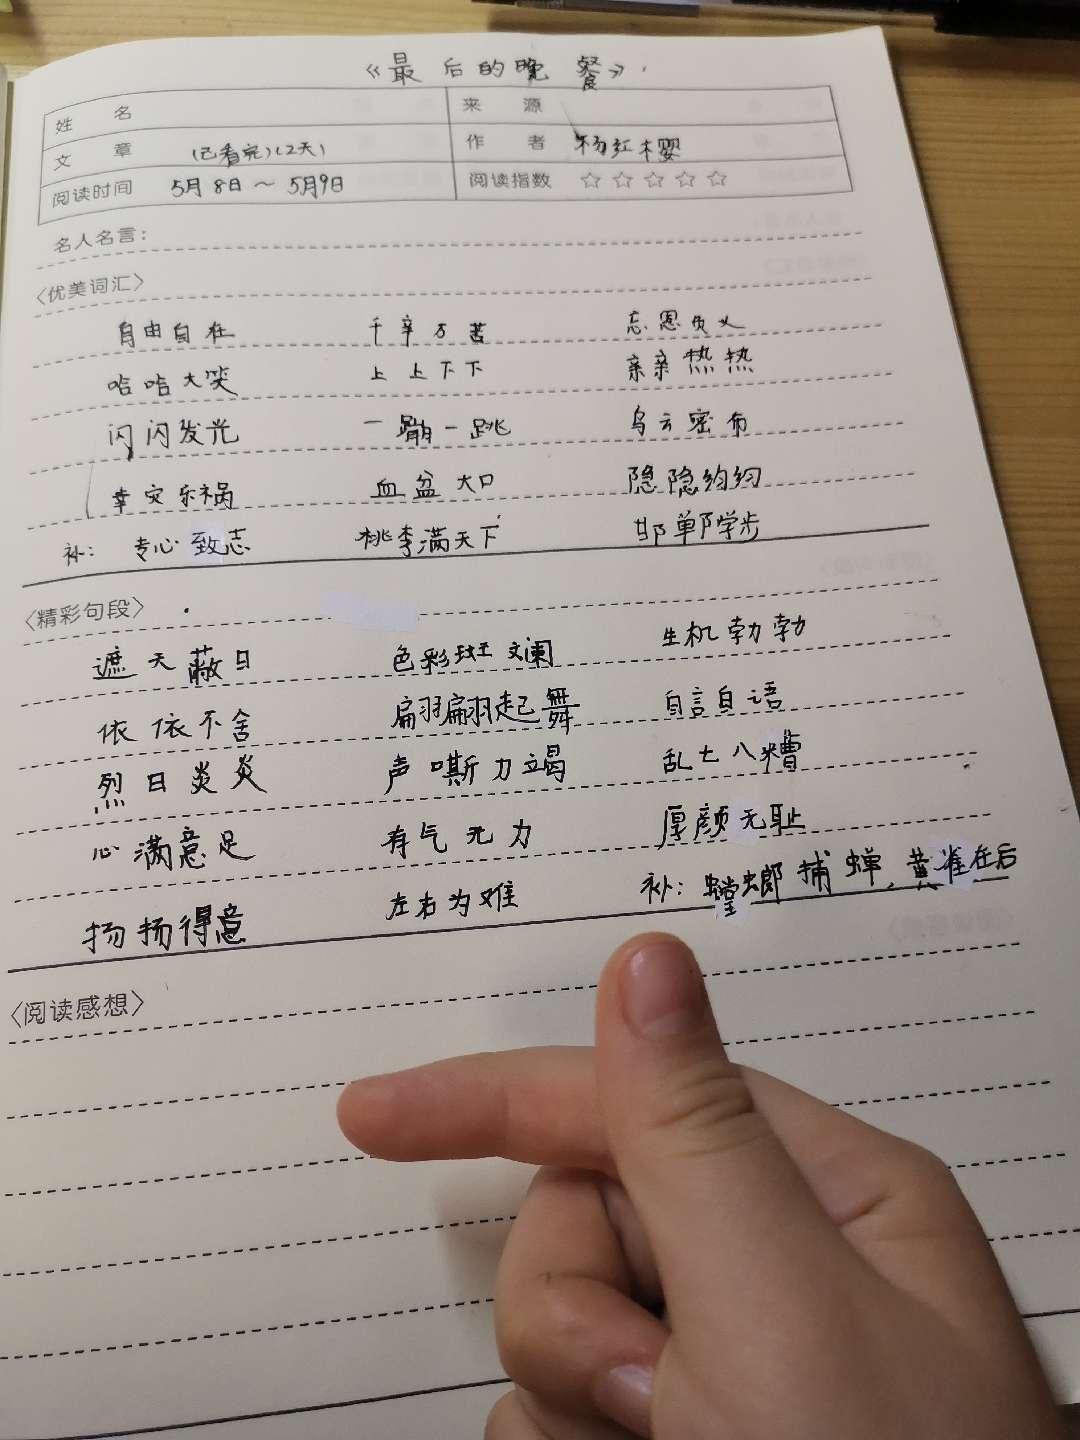 《最后的晚餐》
姓 名 来 源
文 章 (已看完)(2天) 作 者 杨红樱
阅读时间 5月8日～5月9日 阅读指数 ☆☆☆☆☆
名人名言：
〈优美词汇〉
自由自在 千辛万苦 忘恩负义
哈哈大笑 上上下下 亲亲热热
闪闪发光 一蹦一跳 乌云密布
幸灾乐祸 血盆大口 隐隐约约
补：专心致志 桃李满天下 邯郸学步
〈精彩句段〉
遮天蔽日 色彩斑斓 生机勃勃
依依不舍 翩翩起舞 自言自语
烈日炎炎 声嘶力竭 乱七八糟
心满意足 有气无力 厚颜无耻
扬扬得意 左右为难 补：螳螂捕蝉，黄雀在后
〈阅读感想〉